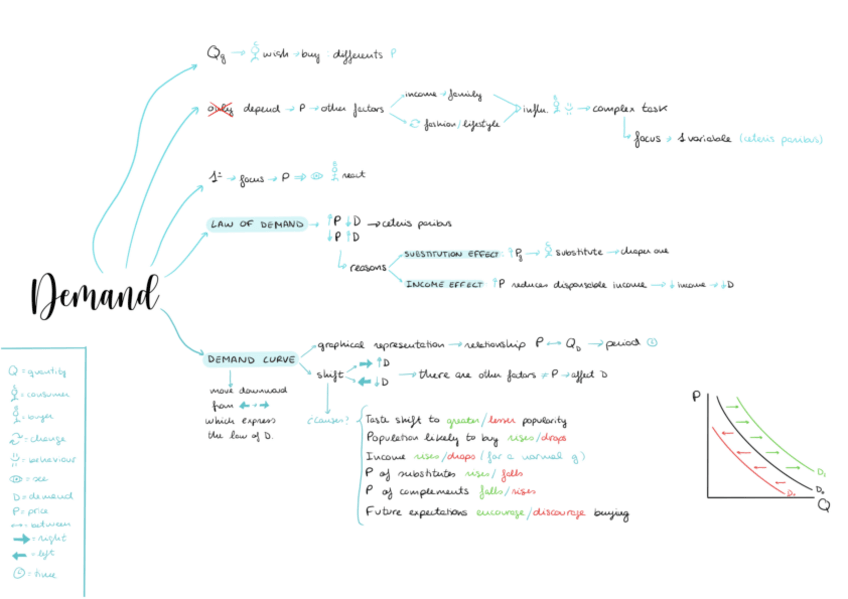 Qg → wish → buy : differents P
only depend → P → other factors
income → family
fashion/lifestyle
influ. → complex task
focus → 1 variable (ceteris paribus)
1º → focus → P ⇒ react
LAW OF DEMAND → ↑P ↓D → ceteris paribus
↓P ↑D
reasons
SUBSTITUTION EFFECT: ↑Pg → substitute → cheaper one
INCOME EFFECT ↑P reduces disponsable income → ↓income → ↓D
Demand
DEMAND CURVE
graphical representation → relationship P ↔ QD → period
shift
➡ ↑D
⬅ ↓D
→ there are other factors ≠ P → affect D
move downward
from ⬅ → ➡
which express
the law of D.
(causes?)
Taste shift to greater/lesser popularity
Population likely to buy rises/drops
Income rises/drops (for a normal g)
P of substitutes rises/falls
P of complements falls/rises
Future expectations encourage/discourage buying
Q = quantity
= consumer
= buyer
= change
= behaviour
= see
D = demand
P = price
↔ = between
➡ = right
⬅ = left
= time
P
D₁
D₀
Q